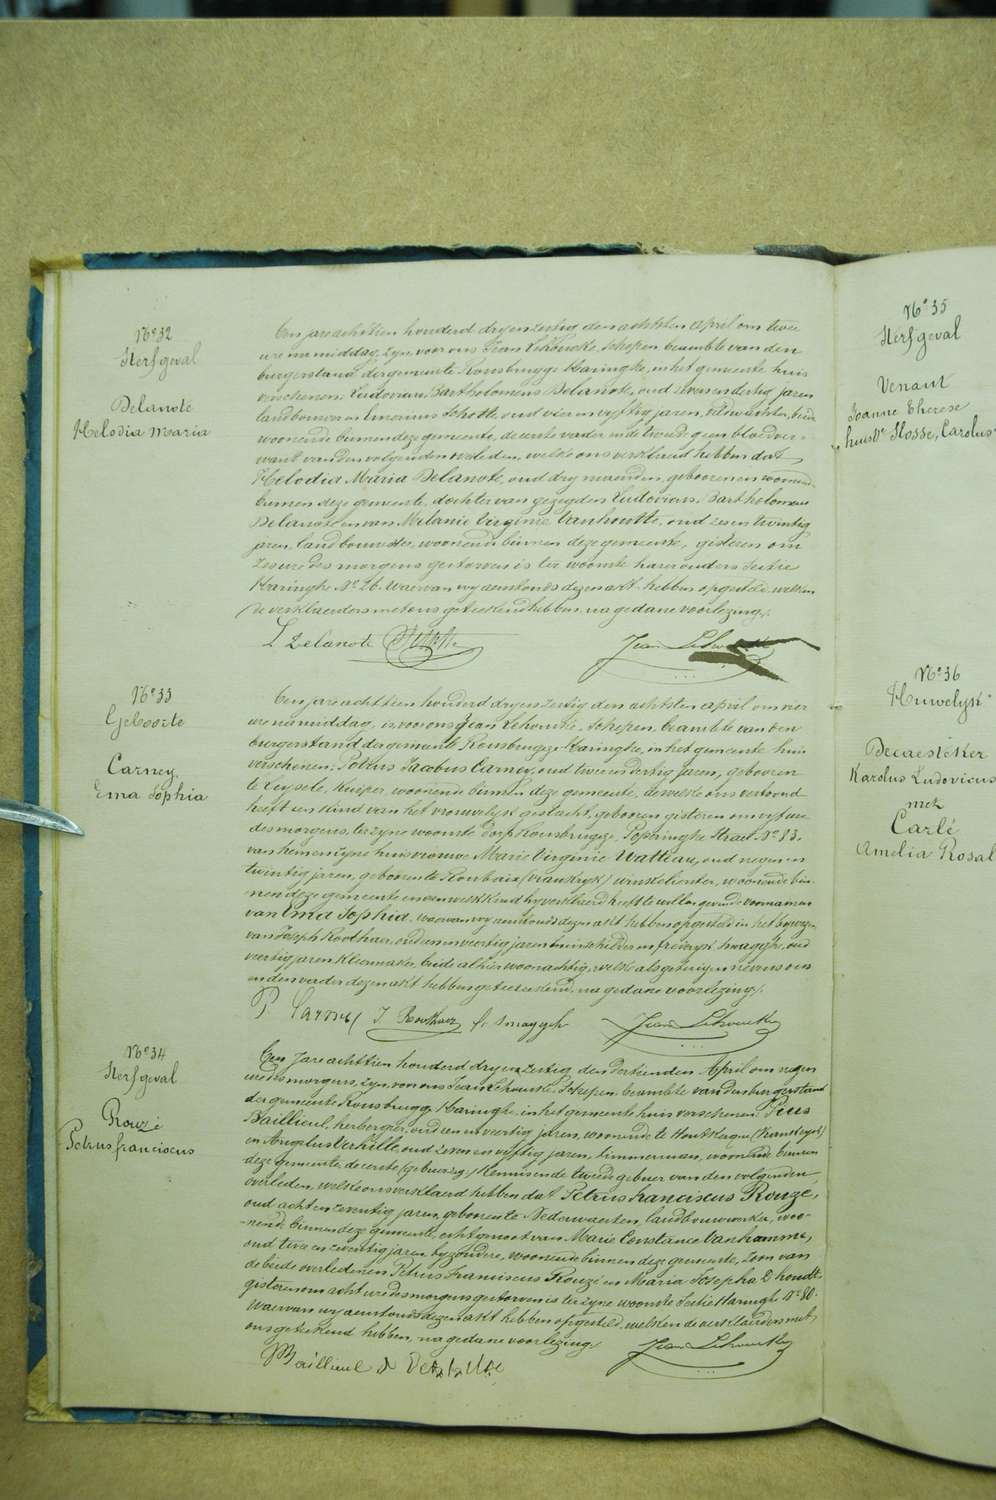 N° 32
Sterfgeval
Delanote
Melodia Maria
Een jare achttien honderd dryenzestig den achtsten april om twee
ure na middag, zyn voor ons Jean Lehoucke, schepen, beambte van den
burgerstand der gemeente Rousbrugge-Haringhe, in het gemeente huis
verschenen: Ludovicus Bartholomeus Delanote, oud zevenendertig jaren
landbouwer en Schotte, oud vier en vyftig jaren, veldwachter, beide
woonende binnen deze gemeente, de eerste vader en de tweede geen bloedver-
want van den volgenden overleden, welke ons verklaerd hebben dat
Melodia Maria Delanote, oud dry maenden, geboren en woonende
binnen deze gemeente, dochter van gezegden Ludovicus Bartholomeus
Delanote en van Melanie Virginie Vanhoutte, oud zesentwintig
jaren, landbouwster, woonende binnen deze gemeente, gisteren om
zes ure des morgens gestorven is ter woonste harer ouders Sectie
Haringhe N° 26. Waervan wy aenstonds dezen akt hebben opgesteld, welken
de verklaerders met ons geteekend hebben, na gedane voorlezing.
L Delanote Schotte Jean Lehoucke
N° 33
Geboorte
Carney
Ema Sophia
Een jare achttien honderd dryenzestig den achtsten april om vier
ure na middag, is voor ons Jean Lehoucke, schepen, beambte van den
burgerstand der gemeente Rousbrugge-Haringhe, in het gemeente huis
verschenen: Petrus Jacobus Carney, oud twee en dertig jaren, geboren
te Leysele, kuiper, woonende binnen deze gemeente, dewelke ons vertoond
heeft een kind van het vrouwelyk geslacht, geboren gisteren om vyf ure
des morgens, ter zyne woonste dorp Rousbrugge, Poperinghe Straet N° 83.
van hem en zyne huisvrouwe Marie Virginie Watteau, oud negen en
twintig jaren, geboren te Roubaix (Vrankryk) winkelierster, woonende bin-
nen deze gemeente en aen welk kind hy verklaerd heeft te willen geven de voornamen
van Ema Sophia. Waervan wy aenstonds dezen akt hebben opgesteld in het bywezen
van Joseph Roothaer, oud zes en veertig jaren huisschilder en frederyk Smagghe, oud
veertig jaren kleermaker, beide alhier woonachtig, welke als getuigen nevens ons
en den vader dezen akt hebben geteekend, na gedane voorlezing.
P Carney J Roothaer f. Smagghe Jean Lehoucke
N° 34
Sterfgeval
Rouzé
Petrus franciscus
Een jare achttien honderd dryenzestig den dertienden April om negen
ure des morgens, zyn voor ons Jean Lehoucke, Schepen, beambte van den burgerstand
der gemeente Rousbrugge-Haringhe, in het gemeente huis verschenen Pius
Baillieul, herbergier, oud een en veertig jaren, woonende te Hondschoote (Vrankryk)
en Angelus Verhille, oud zeven en vyftig jaren, timmerman, woonende binnen
deze gemeente, de eerste kennis en de tweede gebuer van den volgenden
overleden, welke ons verklaerd hebben dat Petrus Franciscus Rouzé,
oud acht en zeventig jaren, geboren te Nederwaesten, landbouwwerker, woo-
nende binnen deze gemeente, echtgenoot van Marie Constance Vanhamme,
oud twee en zeventig jaren, byzondere, woonende binnen deze gemeente, Zoon van
de beide overledenen Petrus Franciscus Rouzé en Maria Josepha D'hondt.
gisteren om acht ure des morgens gestorven is ter zyne woonste Sectie Haringhe N° 80.
Waervan wy aenstonds dezen akt hebben opgesteld, welken de verklaerders met
ons geteekend hebben, na gedane voorlezing. Jean Lehoucke
Baillieul
N° 35
Sterfgeval
Venant
Joanne Therese
huisvr Hosse, Carolus
N° 36
Huwelyk
Decaesteker
Karolus Ludovicus
met
Carlé
Amelia Rosal